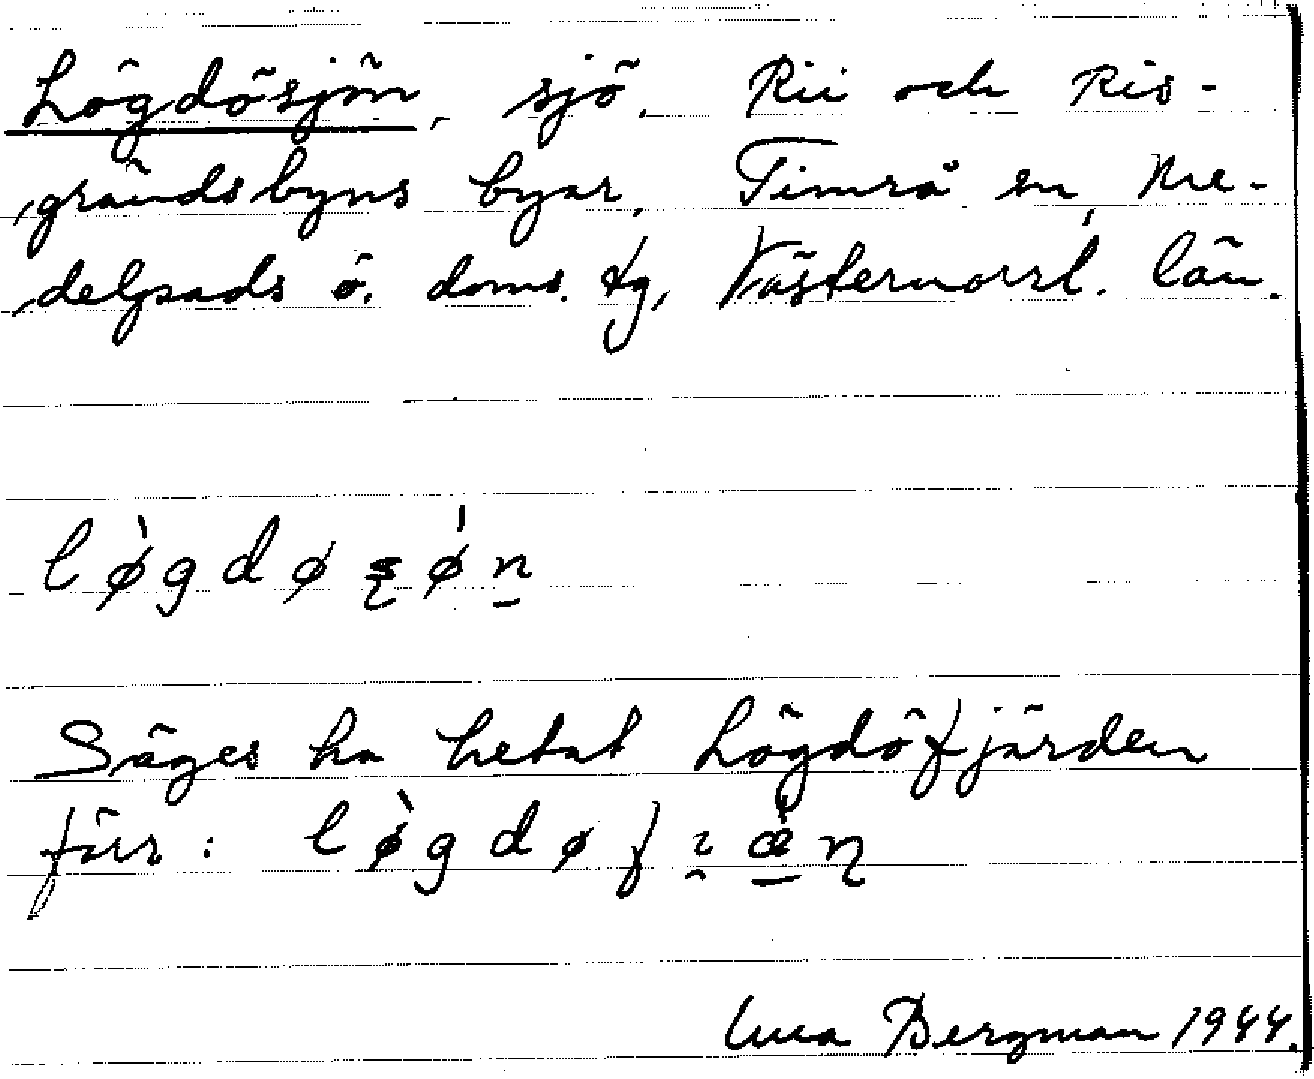 Lögdösjön, sjö, Rii och Ris-
grändsbyns byar, Timrå sn, Me-
delpads ö. doms. tg, Västernorrl. län.
Säges ha hetat Lögdöfjärden
förr:
Bergman 1944.